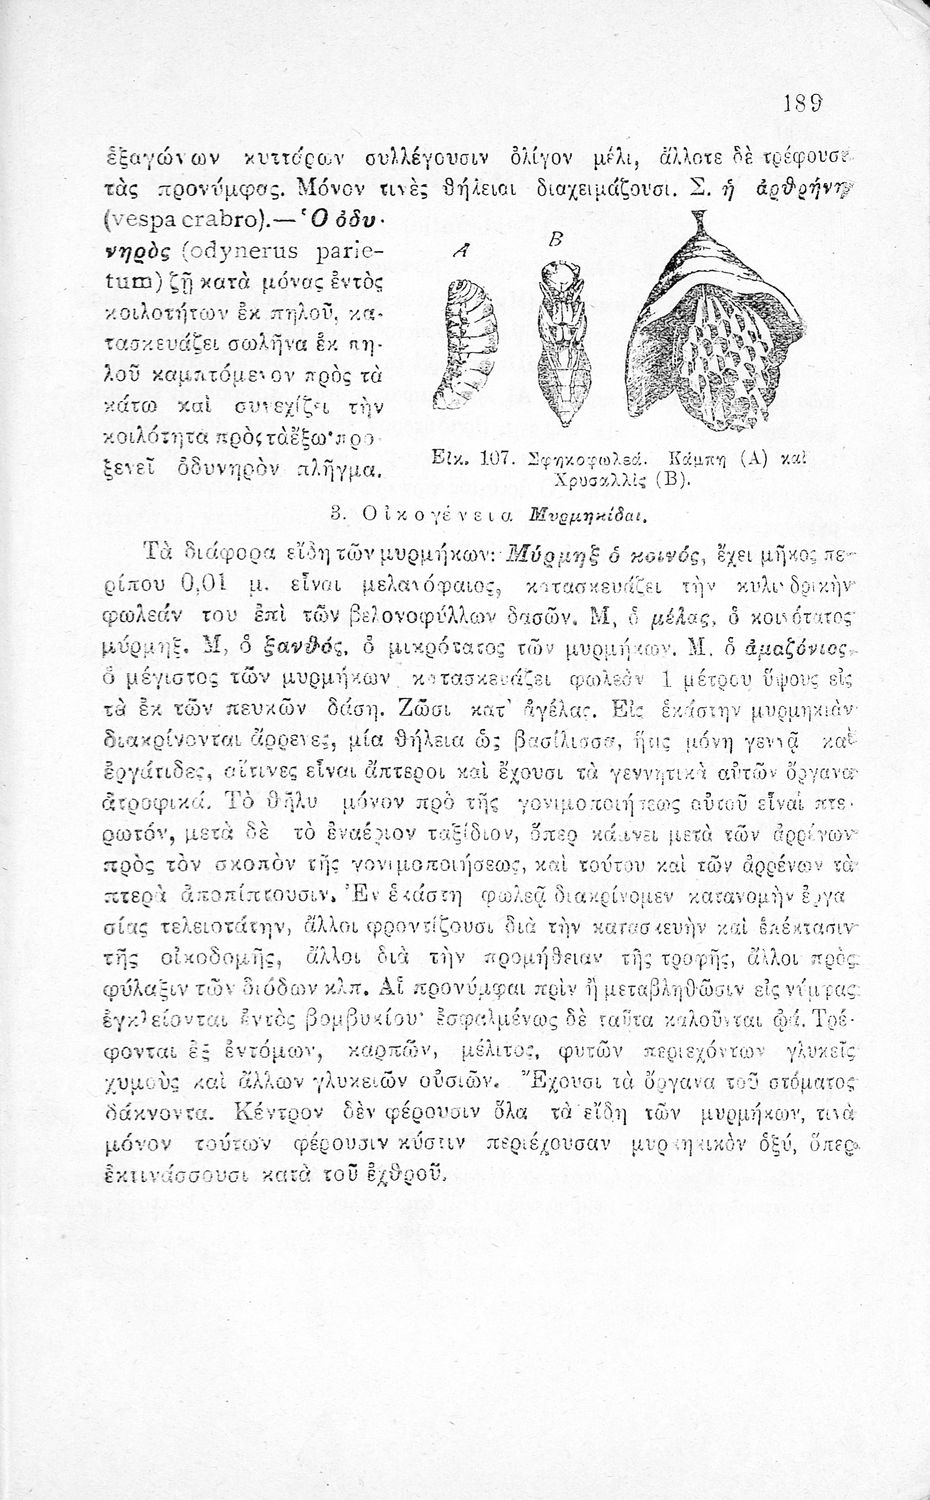 189
ἑξαγώνων κυττάρων συλλέγουσιν ὀλίγον μέλι, ἄλλοτε δὲ τρέφουσι
τὰς προνύμφας. Μόνον τινὲς θήλειαι διαχειμάζουσι. Σ. ἡ ἀρθρήνη
(vespa crabro).—Ὁ ὀδυ-
νηρὸς (odynerus parie-
tum) ζῇ κατὰ μόνας ἐντὸς
κοιλοτήτων ἐκ πηλοῦ, κα-
τασκευάζει σωλῆνα ἐκ πη-
λοῦ καμπτόμενον πρὸς τὰ
κάτω καὶ συνεχίζει τὴν
κοιλότητα πρὸς τὰ ἔξω· προ
ξενεῖ ὀδυνηρὸν πλῆγμα.
A
B
Εἰκ. 107. Σφηκοφωλεά. Κάμπη (A) καὶ
Χρυσαλλὶς (B).
3. Οἰκογένεια Μυρμηκίδαι.
Τὰ διάφορα εἴδη τῶν μυρμήκων: Μύρμηξ ὁ κοινός, ἔχει μῆκος πε-
ρίπου 0,01 μ. εἶναι μελανόφαιος, κατασκευάζει τὴν κυλινδρικὴν
φωλεάν του ἐπὶ τῶν βελονοφύλλων δασῶν. Μ, ὁ μέλας, ὁ κοινότατος
μύρμηξ. Μ, ὁ ξανθός, ὁ μικρότατος τῶν μυρμήκων. Μ. ὁ ἀμαζόνιος,
ὁ μέγιστος τῶν μυρμήκων κατασκευάζει φωλεὰν 1 μέτρου ὕψους εἰς
τὰ ἐκ τῶν πευκῶν δάση. Ζῶσι κατ' ἀγέλας. Εἰς ἑκάστην μυρμηκιὰν
διακρίνονται ἄρρενες, μία θήλεια ὡς βασίλισσα, ἥτις μόνη γεννᾷ καὶ
ἐργάτιδες, αἵτινες εἶναι ἄπτεροι καὶ ἔχουσι τὰ γεννητικὰ αὐτῶν ὄργανα
ἀτροφικά. Τὸ θῆλυ μόνον πρὸ τῆς γονιμοποιήσεως αὐτοῦ εἶναι πτε-
ρωτόν, μετὰ δὲ τὸ ἐναέριον ταξίδιον, ὅπερ κάμνει μετὰ τῶν ἀρρένων
πρὸς τὸν σκοπὸν τῆς γονιμοποιήσεως, καὶ τούτου καὶ τῶν ἀρρένων τὰ
πτερὰ ἀποπίπτουσιν. Ἐν ἑκάστη φωλεᾷ διακρίνομεν κατανομὴν ἐργα
σίας τελειοτάτην, ἄλλοι φροντίζουσι διὰ τὴν κατασκευὴν καὶ ἐπέκτασιν
τῆς οἰκοδομῆς, ἄλλοι διὰ τὴν προμήθειαν τῆς τροφῆς, ἄλλοι πρὸς
φύλαξιν τῶν διόδων κλπ. Αἱ προνύμφαι πρὶν ἢ μεταβληθῶσιν εἰς νύμφας
ἐγκλείονται ἐντὸς βομβυκίου· ἐσφαλμένως δὲ ταῦτα καλοῦνται ᾠά. Τρέ-
φονται ἐξ ἐντόμων, καρπῶν, μέλιτος, φυτῶν περιεχόντων γλυκεῖς
χυμοὺς καὶ ἄλλων γλυκειῶν οὐσιῶν. Ἔχουσι τὰ ὄργανα τοῦ στόματος
δάκνοντα. Κέντρον δὲν φέρουσιν ὅλα τὰ εἴδη τῶν μυρμήκων, τινὰ
μόνον τούτων φέρουσιν κύστιν περιέχουσαν μυρμηκικὸν ὀξύ, ὅπερ
ἐκτινάσσουσι κατὰ τοῦ ἐχθροῦ.